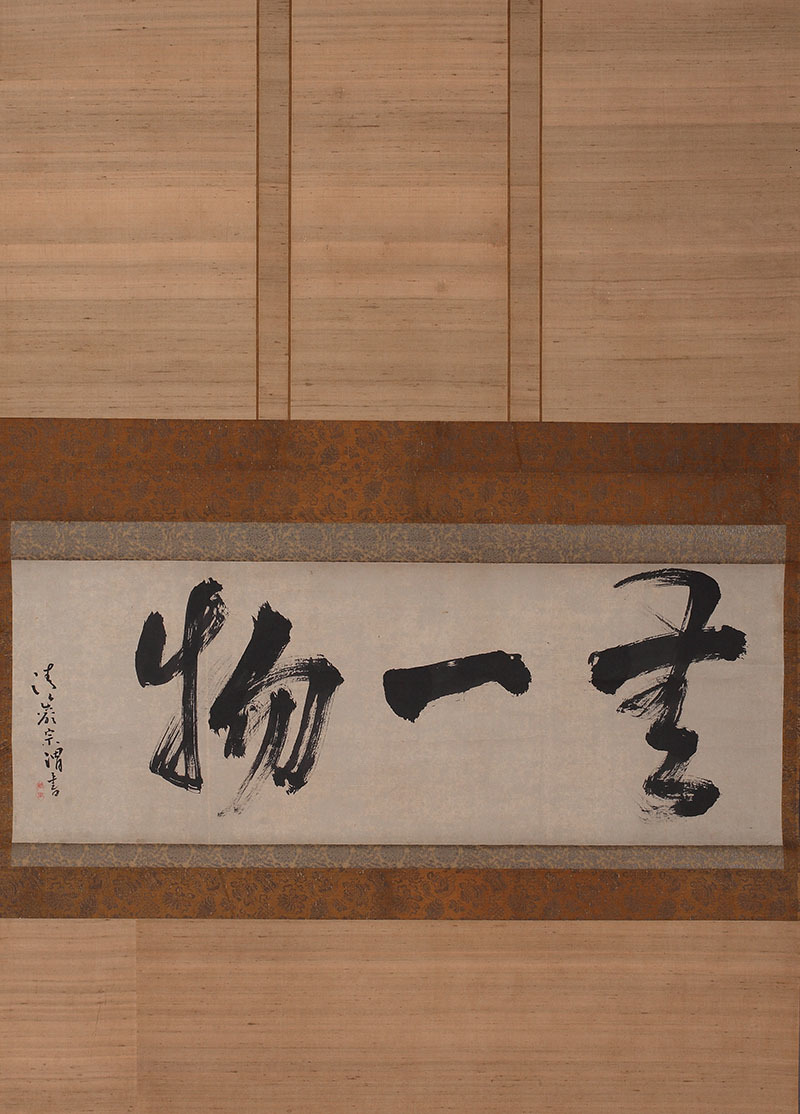 無一物
清巖宗渭書